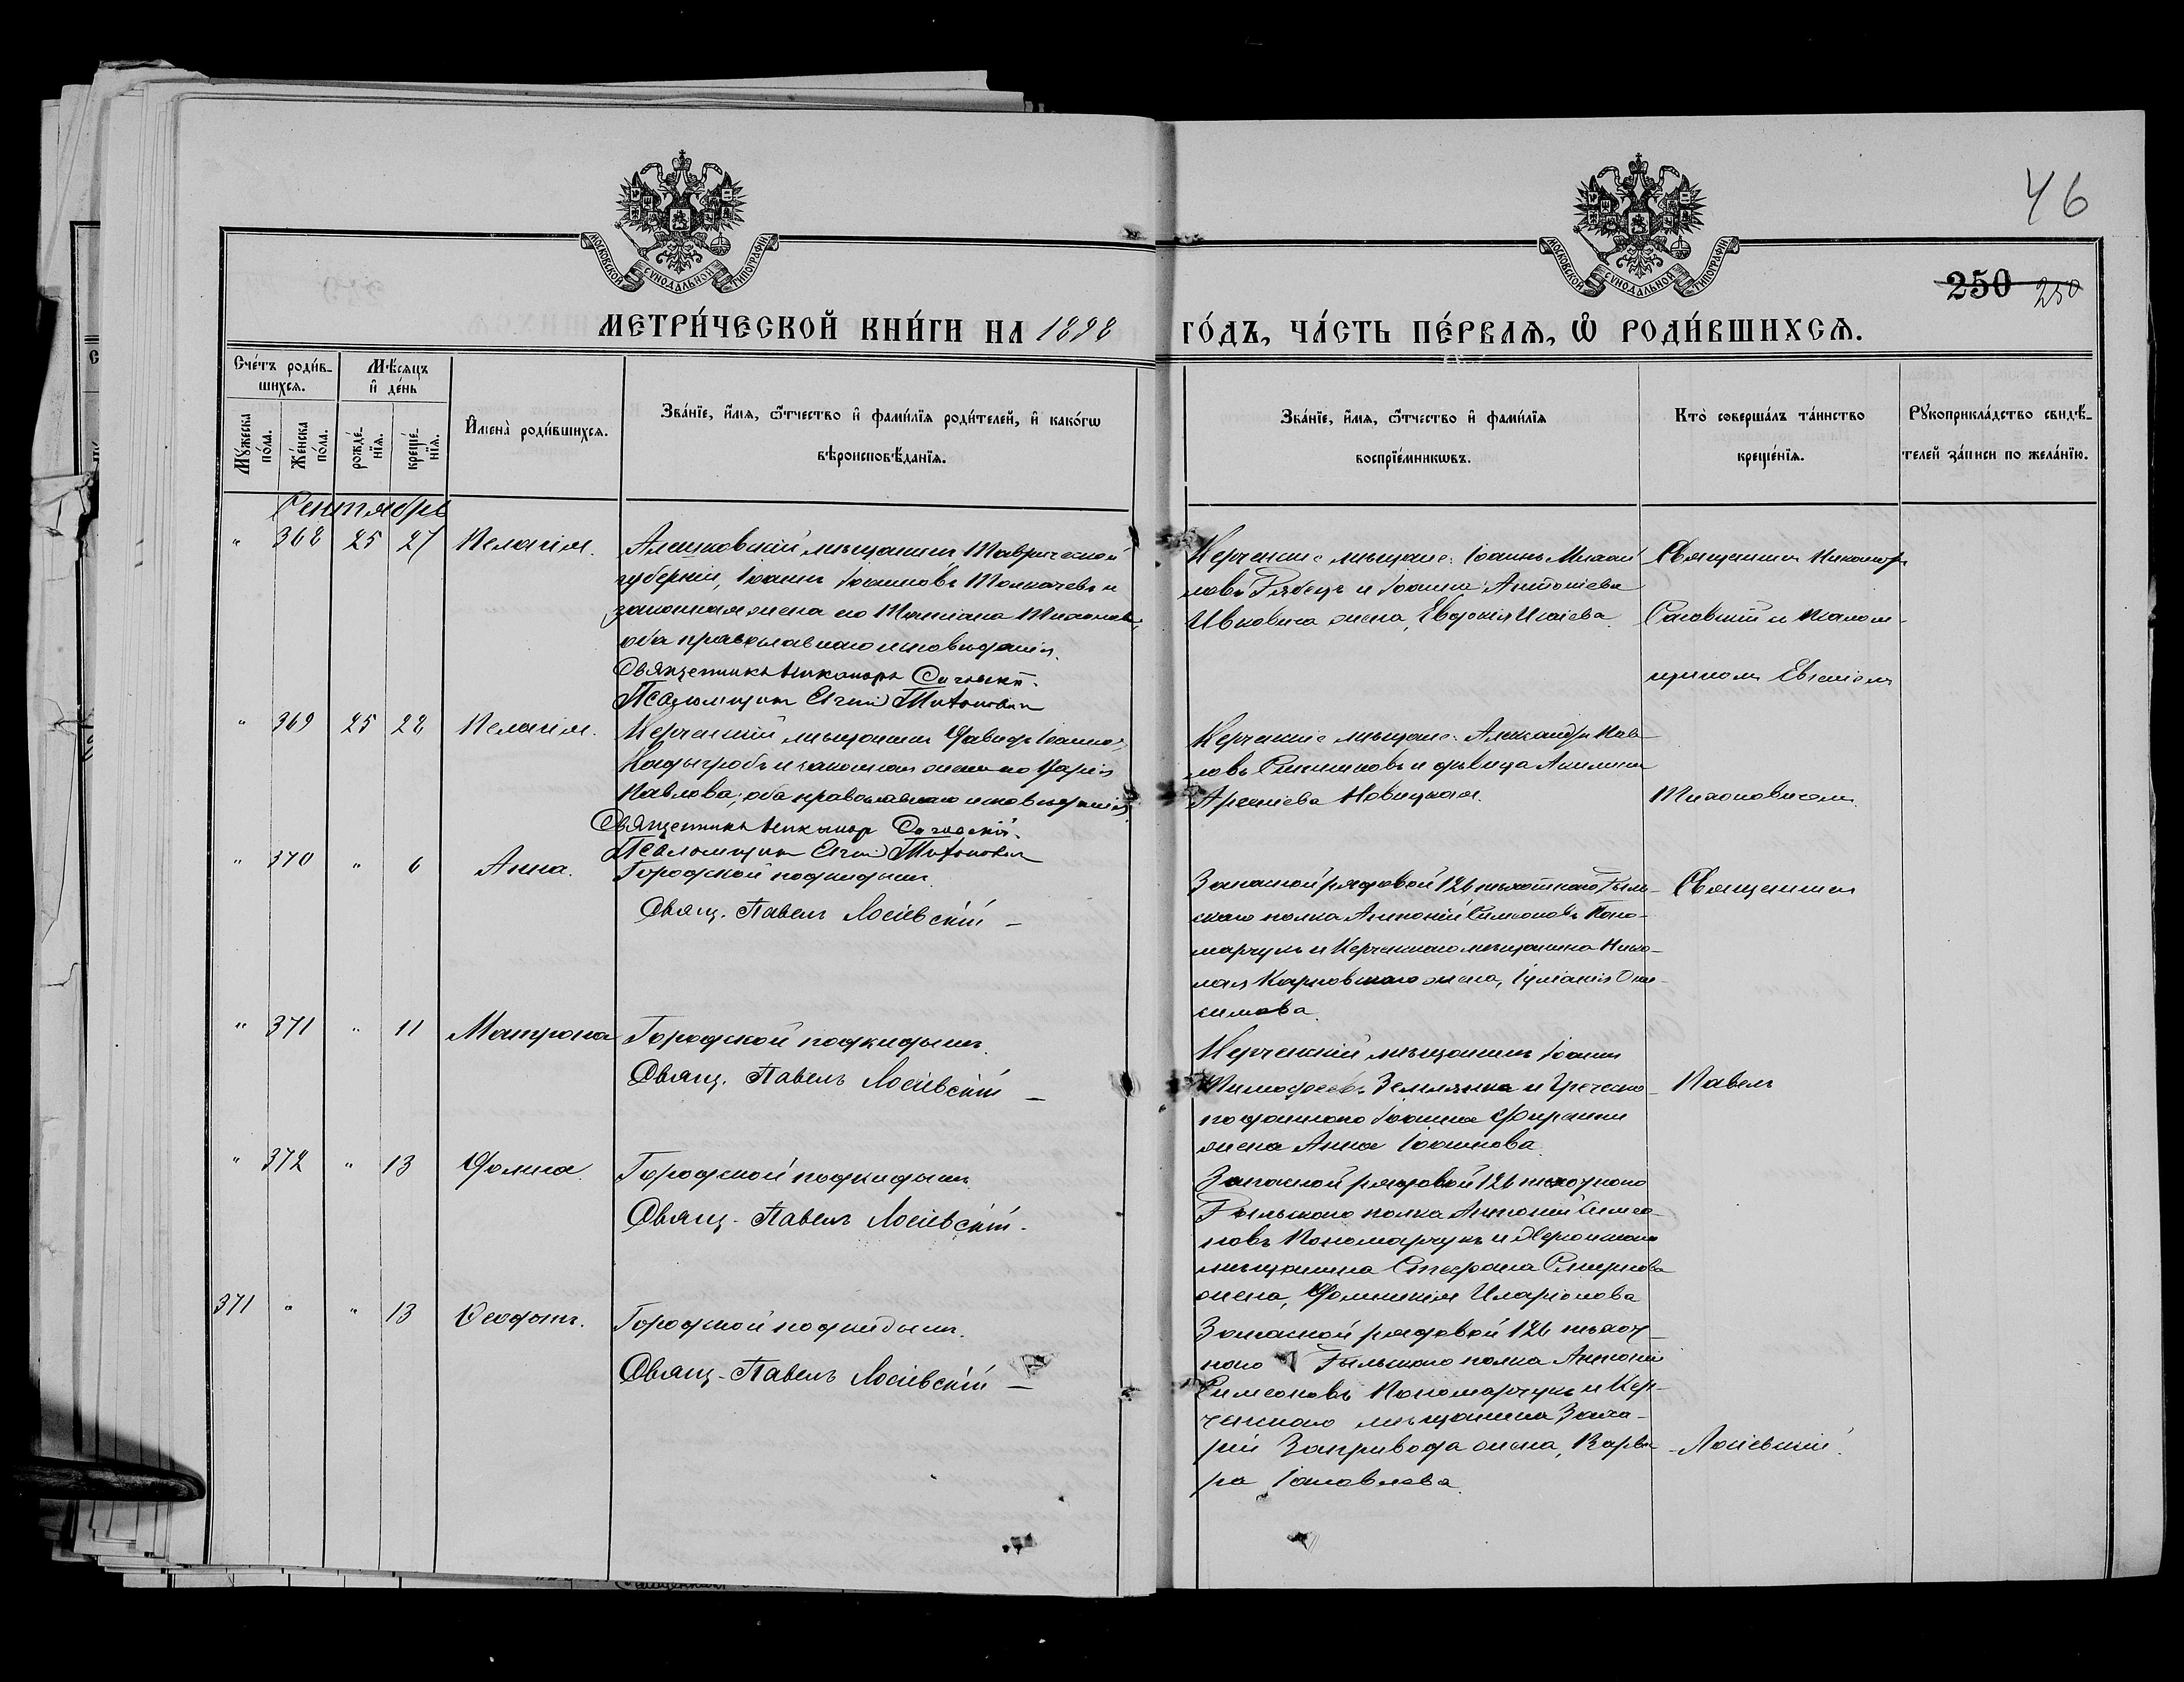 46
МОСКОВСКОЙ СѴНОДАЛЬНОЙ ТИПОГРАФІИ
МОСКОВСКОЙ СѴНОДАЛЬНОЙ ТИПОГРАФІИ
250 250
МЕТРИ́ЧЕСКОЙ КНИ́ГИ НА 1898
ГО́ДЪ, ЧА́СТЬ ПЕ́РВАѦ, Ѽ РОДИ́ВШИХСѦ.
Сче́тъ роди́в-
шихсѧ.
Мѣ́сѧцъ
и҆ де́нь
Мꙋ́жеска
по́ла.
Же́нска
по́ла.
рожде́-
нїѧ.
креще́-
нїѧ.
И҆мена̀ роди́вшихсѧ.
Зва́нїе, и҆́мѧ, ѻ҆́тчество и҆ фами́лїѧ роди́телей, и҆ како́гѡ
вѣроисповѣ́данїѧ.
Зва́нїе, и҆́мѧ, ѻ҆́тчество и҆ фами́лїѧ
воспрїе́мникѡвъ.
Кто̀ соверша́лъ та́инство
креще́нїѧ.
Рꙋкоприкла́дство свидѣ́-
телей за́писи по жела́нїю.
Сентябрь
" 368 25 27 Пелагія.
Алешковскій мѣщанинъ Таврической
губерніи, Іоаннъ Іоанновъ Толкачевъ и
законная жена его Татіана
оба православнаго исповѣданія.
Священникъ Никаноръ
Псаломщикъ Евгеній Тихоновичъ
Керченскіе мѣщане: Іоаннъ Михаи
ловъ Рябецъ и Іоанна Антоніева
Ивковича жена, Евдокія Исаіева.
Священникъ Никаноръ
и Псалом-
щикомъ Евгеніемъ
Тихоновичемъ.
" 369 25 28 Пелагія.
Керченскій мѣщанинъ Давидъ Іоанновъ
и законная жена его Дарія
Павлова, оба православнаго исповѣданія
Священникъ Никаноръ
Псаломщикъ Евгеній Тихоновичъ
Керченскіе мѣщане: Александръ Пав-
ловъ и дѣвица Акилина
Арсеніева Новицкая.
" 370 " 6 Анна.
Городской подкидышъ.
Свящ. Павелъ Лосіевскій -
Запасной рядовой 126 пѣхотнаго Рыль-
скаго полка Антоній Симеоновъ Поно-
марчукъ и Керченскаго мѣщанина Нико-
лая Карповскаго жена, Іуліанія Они-
симова.
Священникъ
" 371 " 11 Матрона
Городской подкидышъ.
Свящ. Павелъ Лосіевскій -
Керченскій мѣщанинъ Іоаннъ
Тимофеевъ Землянка и Греческо-
подданнаго Іоанна
жена Анна Іоаннова.
Павелъ
" 372 " 13 Фомаида.
Городской подкидышъ
Свящ. Павелъ Лосіевскій.
Запасной рядовой 126 пѣхотнаго
Рыльскаго полка Антоній Симео-
новъ Пономарчукъ и Херсонскаго
мѣщанина Стефана Смирнова
жена, Иларіонова
371 " " 13 Феодотъ.
Городской подкидышъ.
Свящ. Павелъ Лосіевскій -
Запасной рядовой 126 пѣхот-
наго Рыльскаго полка Антоній
Симеоновъ Пономарчукъ и Кер-
ченскаго мѣщанина Заха-
рій Запривода жена, Варва-
ра Іаковлева.
Лосіевскій.